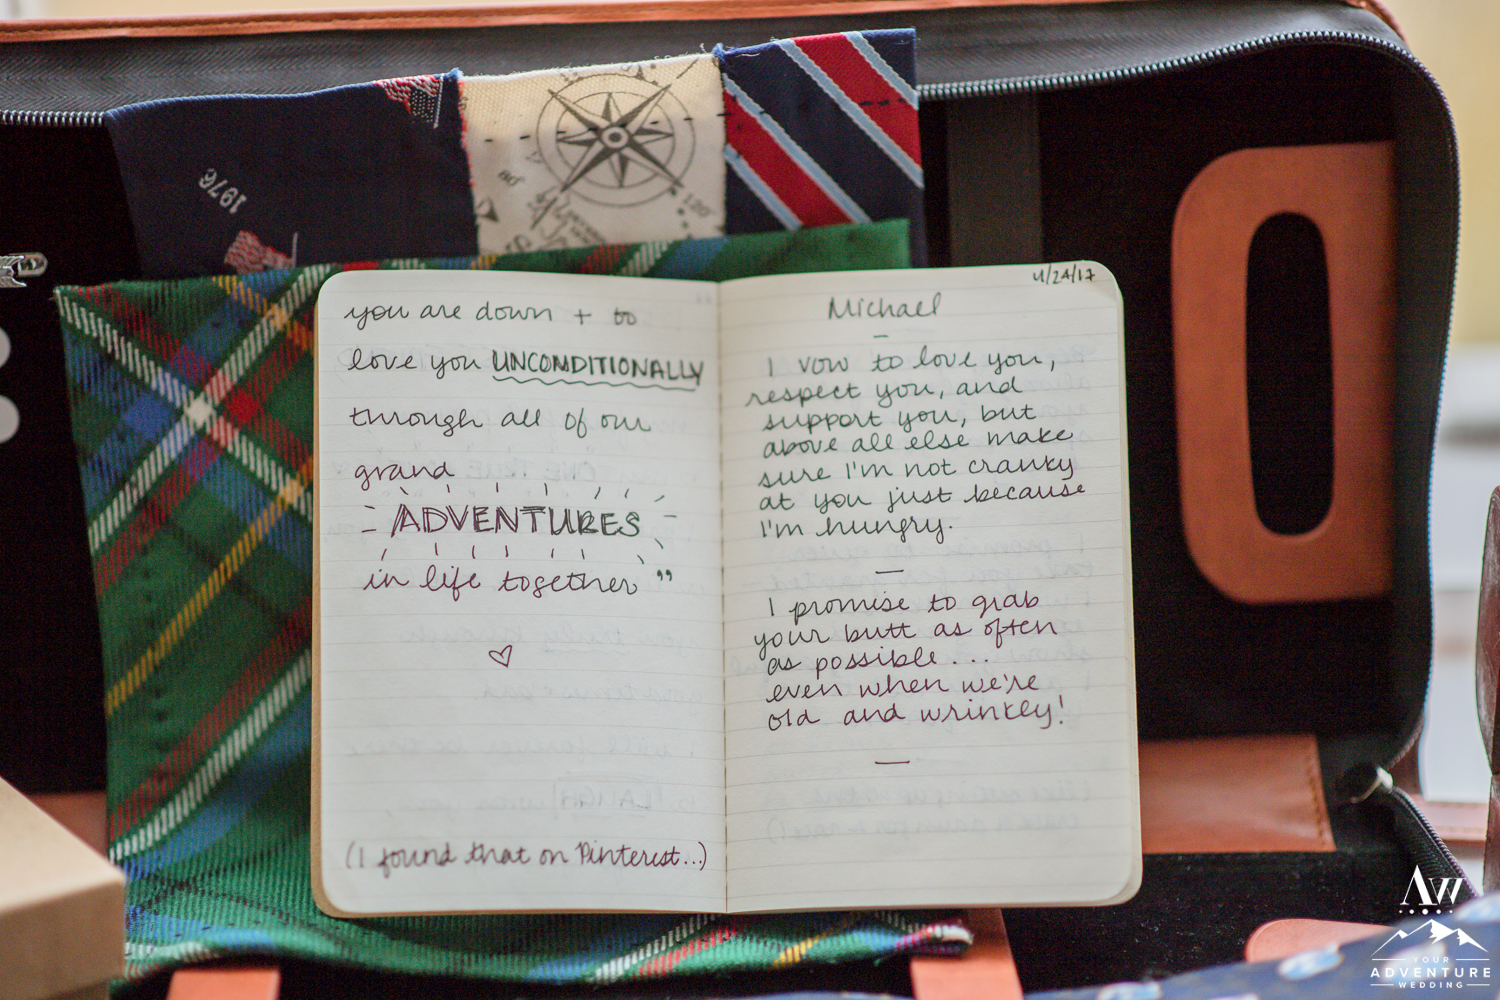 1976
you are down + to
love you UNCONDITIONALLY
through all of our
grand
ADVENTURES
in life together"
♡
(I found that on Pinterest...)
4/24/17
Michael
–
I vow to love you,
respect you, and
support you, but
above all else make
sure I'm not cranky
at you just because
I'm hungry.
—
I promise to grab
your butt as often
as possible....
even when we're
old and wrinkey!
—
AW
YOUR
ADVENTURE
WEDDING